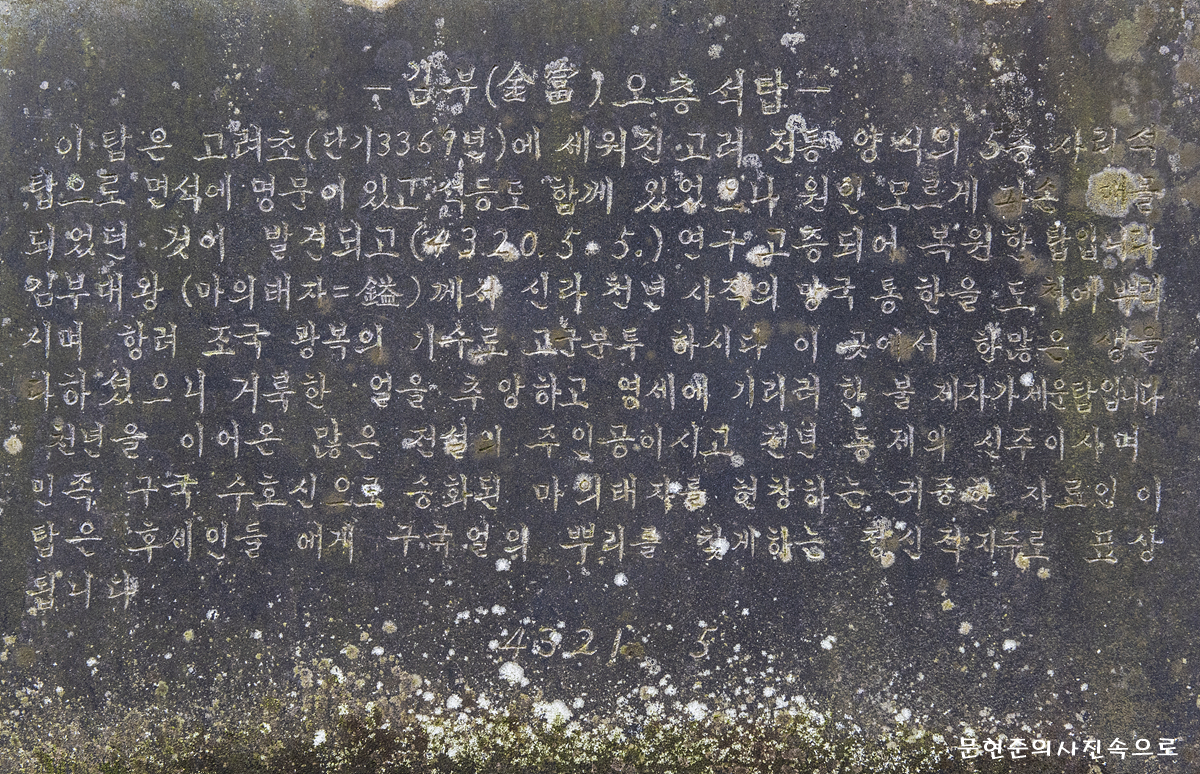 -김부(金富) 오층석탑-
이 탑은 고려초(단기3369년)에 세워진 고려 전통 양식의 5층 사리석
탑으로 면석에 명문이 있고 석등도 함께 있었으나 원인 모르게 파손
되었던 것이 발견되고(4320.5.5.) 연구 고증되어 복원한 탑입니다
김부대왕 (마의태자=鎰)께서 신라 천년 사직의 망국 통한을 도처에 뿌리
시며 항려 조국 광복의 기수로 고군분투 하시다 이 곳에서 한많은 생을
다하셨으니 거룩한 얼을 추앙하고 영세에 기리려 한 불 제자가세운탑입니다
천년을 이어온 많은 전설의 주인공이시고 천년 동제의 신주이시며
민족 구국 수호신으로 승화된 마의태자를 현창하는 귀중한 자료인 이
탑은 후세인들 에게 구국얼의 뿌리를 찾게하는 정신적지주로 표상
됩니다
4321. 5
문현준의사진속으로